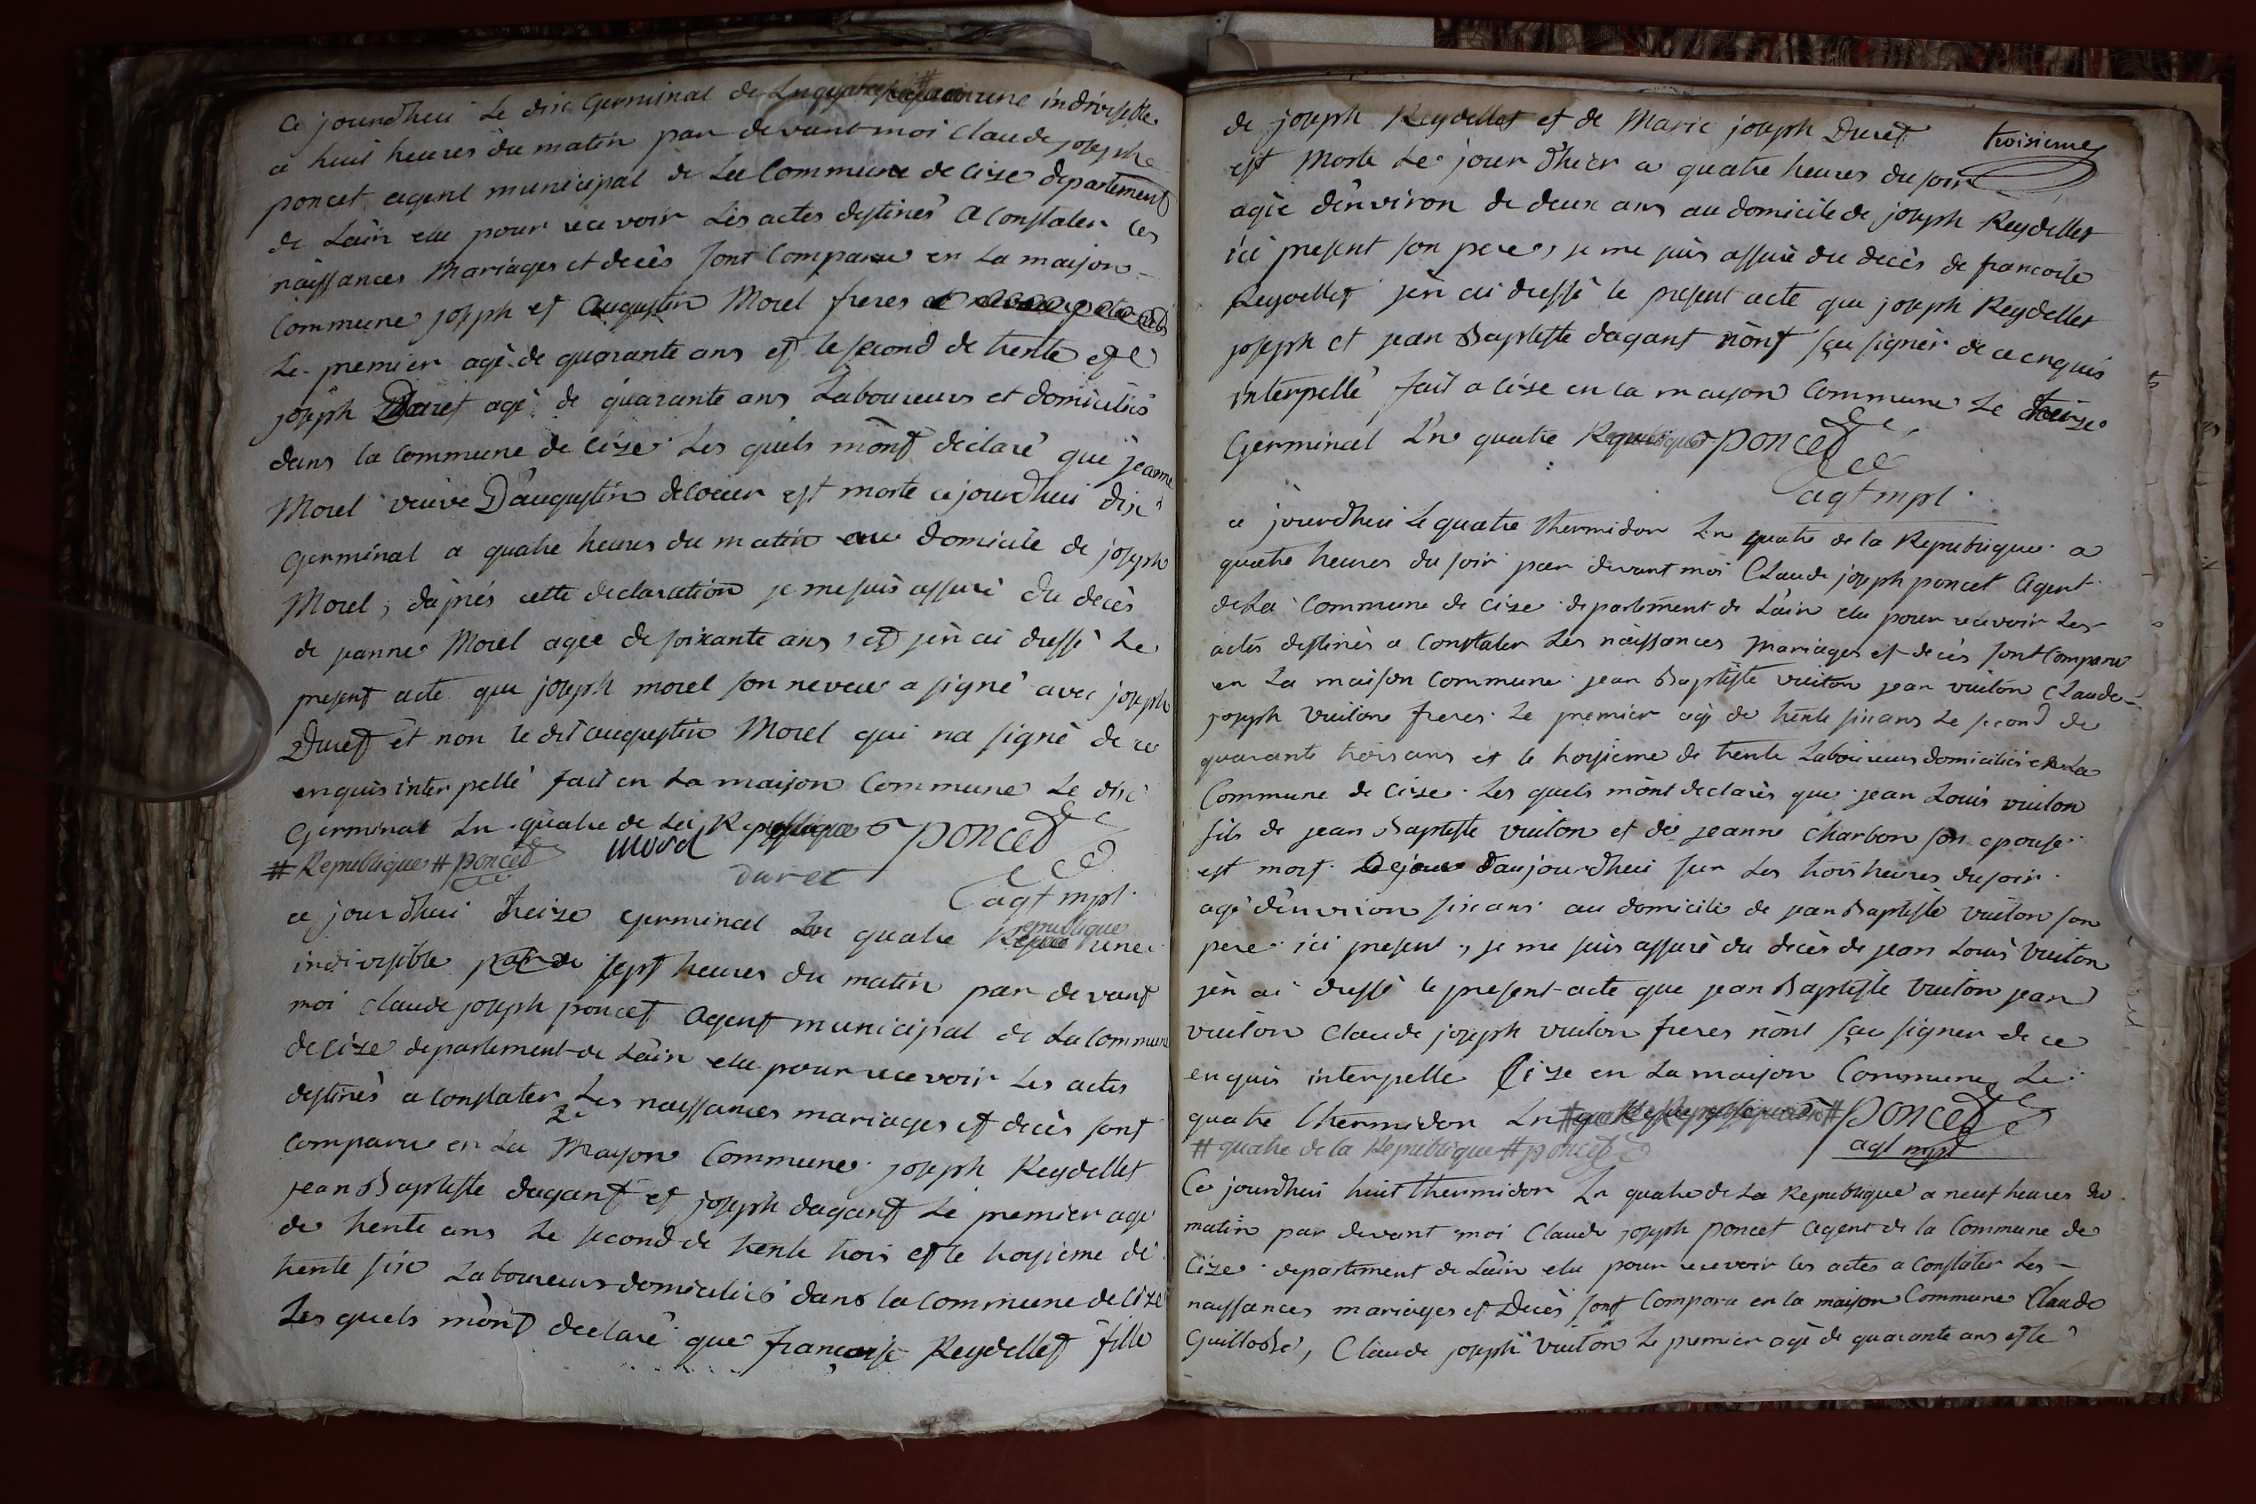 ce jourdhui Le dix Germinal de Ln quatre # une indivisible
a huit heures du matin par devant moi Claude joseph
poncet agent municipal de La Commune de Cize departement
de Làin elu pour recevoir Les actes destinés a Constater les
naissances Mariages et decès sont Comparu en La maison
Commune joseph et augustin Morel freres
Le premier agè de quarante ans et le second de trente et
joseph Duret agè de quarante ans Laboureurs et domiciliés
dans la commune de Cize Les quels mònt declaré que jeanne
Morel veuve D'augustin decoeur est morte ce jourdhui dix
Germinal a quatre heures du matin au domicile de joseph
Morel, dàprés cette declaration je me suis assuré du decès
de jeanne Morel agee de soixante ans, et jèn ai dressé Le
present acte que joseph morel son neveu a signé avec joseph
Duret et non le dit augustin Morel qui na signé de ce
enquis interpellé fait en La maison Commune Le dix
Germinal Ln quatre de La Republique poncet
# Republique # poncet morel
duret agt mpl.
ce jourdhui treize Germinal Ln quatre republique une
indivisible sept heures du matin par devant
moi Claude joseph poncet agent municipal de La Commune
de Cize departement de Làin elu pour recevoir Les actes
destinés a constater Les naissances mariages et decès sont
comparu en La Mayson Commune joseph Reydellet
jean Baptiste dagant et joseph dagant Le premier agé
de trente ans Le second de trente trois et le troysieme de
trente six Laboureurs domiciliés dans la commune de Cize
Les quels mònt declaré que françoise Reydellet fille
de joseph Reydellet et de Marie joseph Duret troisieme
est Morte Le jour d'hier a quatre heures du soir
agèe dènviron de deux ans au domicile de joseph Reydellet
ici present son pere, je me suis assuré du decès de francoise
Reydellet jèn ai dressé le present acte que joseph Reydellet
joseph et jean Baptiste dagant nònt sçu signér de ce enquis
interpellé fait a Cize en la mayson Commune Le treize
Germinal Ln quatre Republique poncet
agt mpl.
ce jourdhui Le quatre thermidor Ln quatre de la Republique a
quatre heures du soir par devant moi Claude joseph poncet agent
de La Commune de Cize departement de Làin elu pour recevoir Les
actes destinés a Constater Les naissances Mariages et decès sont Comparu
en La maison Commune jean Baptiste vuiton jean vuiton Claude
joseph Vuiton freres Le premier agé de trente six ans Le second de
quarante trois ans et le troysieme de trente Laboureurs domiciliés de La
Commune de Cize. Les quels mònt declarés que jean Louis vuiton
fils de jean Baptiste vuiton et de jeanne Charbon son epouse
est mort Le jour daujourdhui sur Les trois heures du soir.
agé dènvrion six ans au domicile de jean Baptiste vuiton son
pere ici present, je me suis assuré du decès de jean Louis Vuiton
jèn ai dressé le present acte que jean Baptiste Vuiton jean
vuiton Claude joseph vuiton freres nònt sçu signer de ce
enquis interpelle Cize en La maison Commune Le
quatre thermidor Ln # # poncet
# quatre de la Republique # poncet agt mpl
Ce jourdhui huit thermidor Ln quatre de La Republique a neuf heures du
matin par devant moi Claude joseph poncet agent de la Commune de
Cize departement de Làin elu pour recevoir les actes a Constater Les
naissances mariages et Decès sont Comparu en la maison Commune Claude
Guillodre, Claude joseph vuiton Le premier agé de quarante ans et le